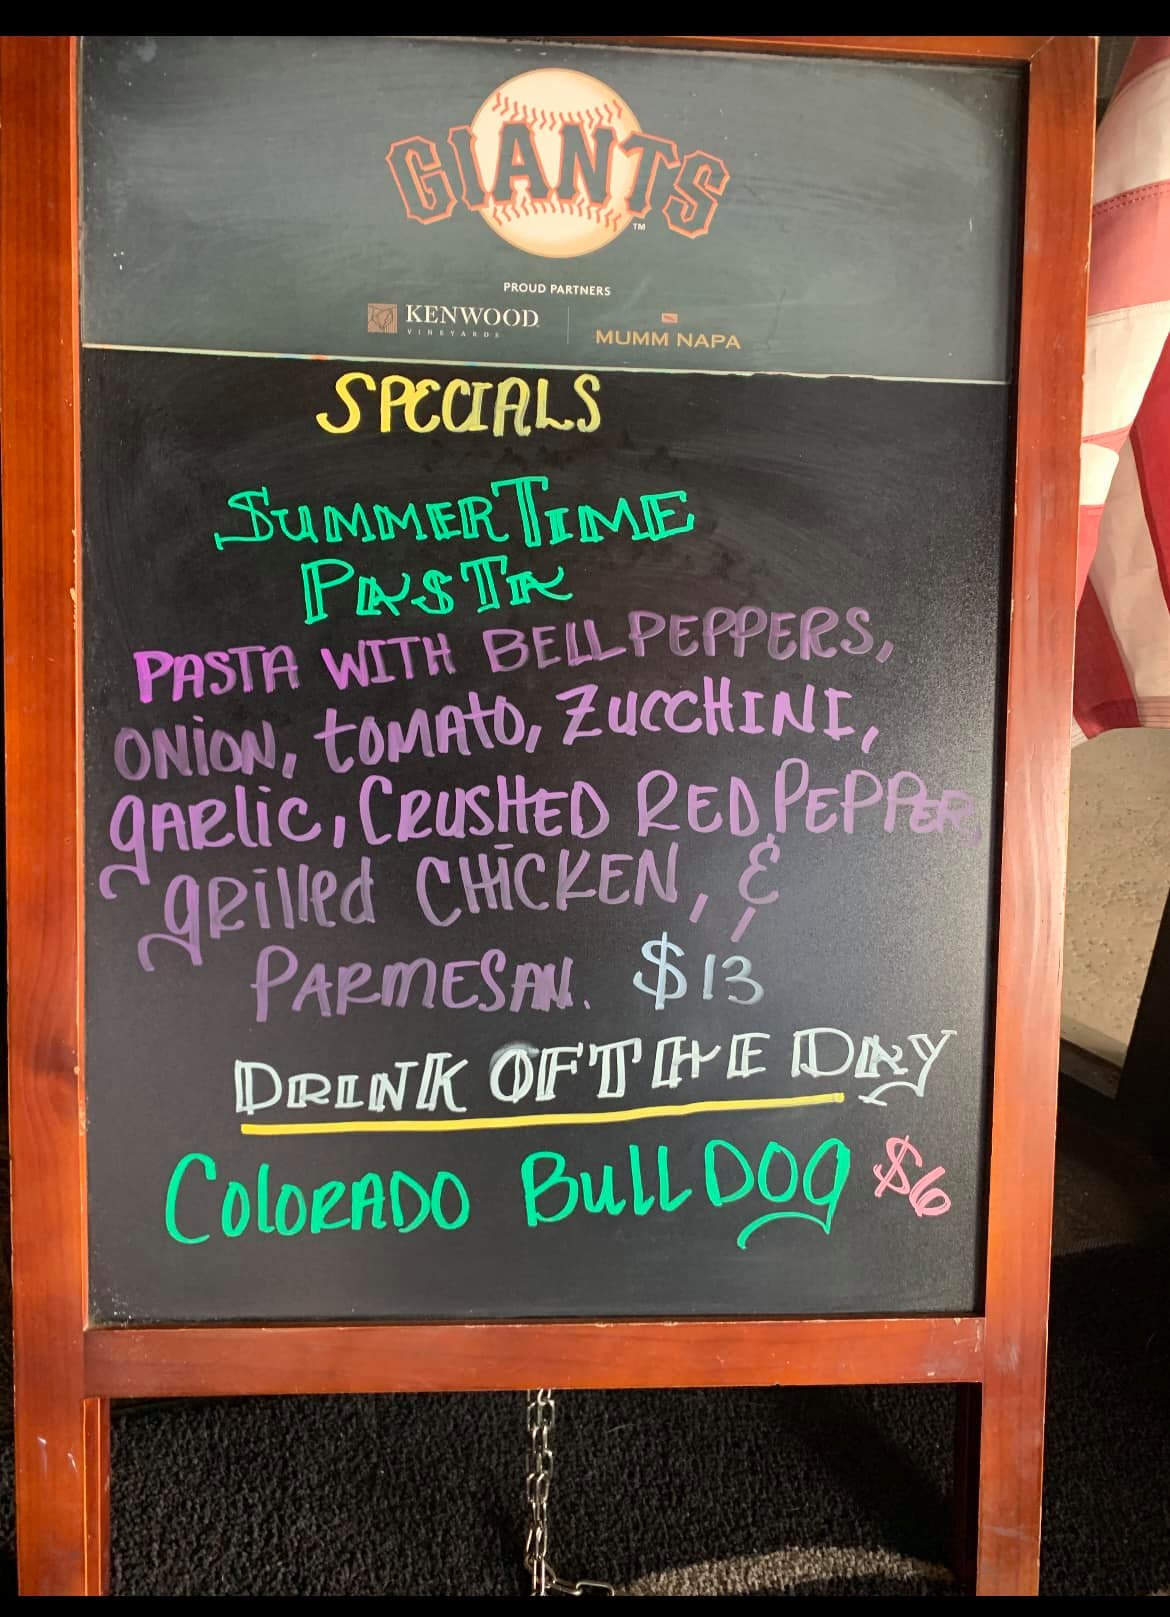 GIANTS
TM
PROUD PARTNERS
KENWOOD
VINEYARDS
MUMM NAPA
SPECIALS
SUMMER TIME
PASTA
PASTA WITH BELL PEPPERS,
ONION, TOMATO, ZUCCHINI,
GARLIC, CRUSHED RED PEPPER,
GRILLED CHICKEN, &
PARMESAN. $13
DRINK OF THE DAY
COLORADO BULLDOG $6